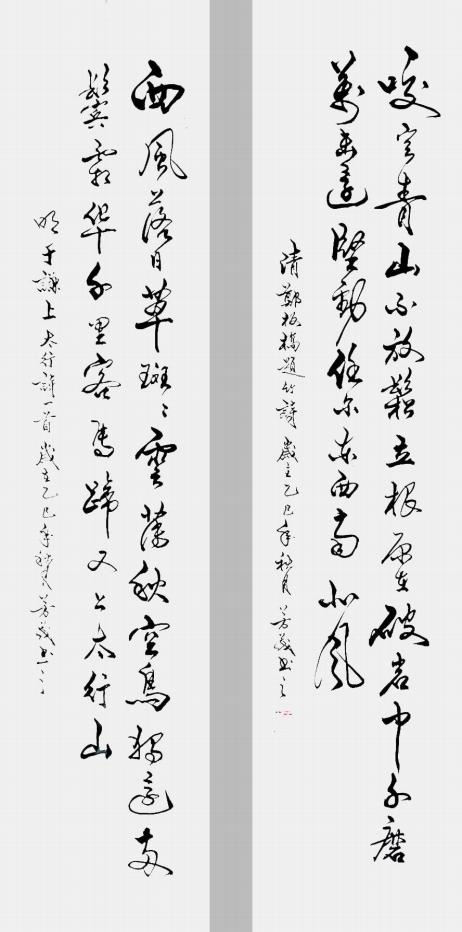 咬定青山不放鬆立根原在破岩中千磨
萬擊還堅勁任尔東西南北風
清鄭板橋題竹詩 歲在乙巳年秋月 芳義書之
西風落日草斑斑雲薄秋空鳥獨還兩
鬢霜華千里客馬蹄又上太行山
明于謙上太行詩一首 歲在乙巳年秋月芳義書之